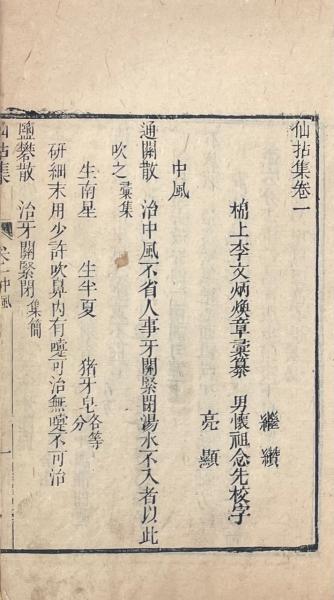 仙拈集卷一
繼纘
楡上李文炳煥章彙纂 男懷祖念先校字
亮顯
中風
通關散 治中風不省人事牙關緊閉湯水不入者以此
吹之 彙集
生南星 生半夏 猪牙皂各等分
研細末用少許吹鼻內有嚏可治無嚏不可治
鹽礬散 治牙關緊閉 集簡
仙拈集 卷一 中風 一